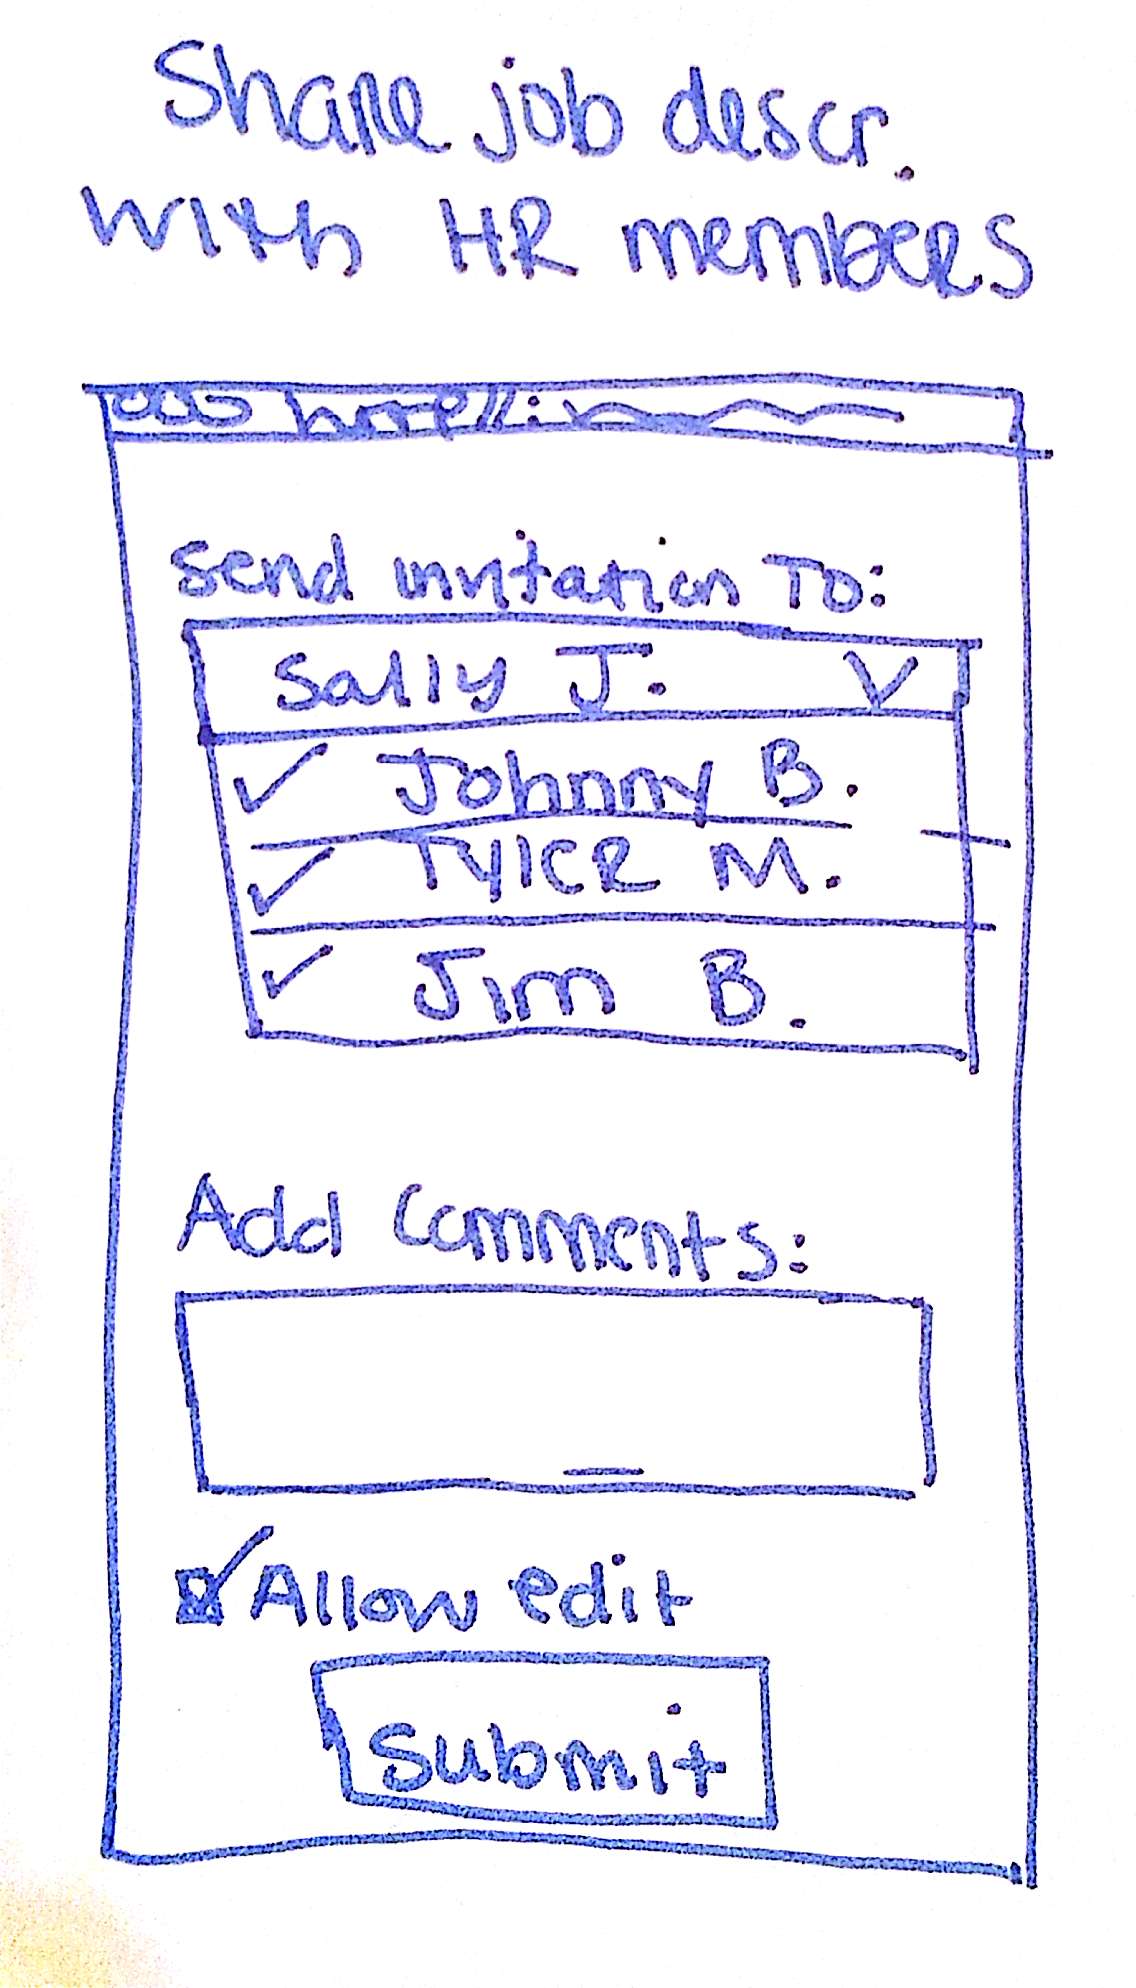 Share job descr.
with HR members
http//:
Send invitation To:
Sally J.
✓ Johnny B.
✓ Tyler M.
✓ Jim B.
Add Comments:
✓ Allow edit
Submit